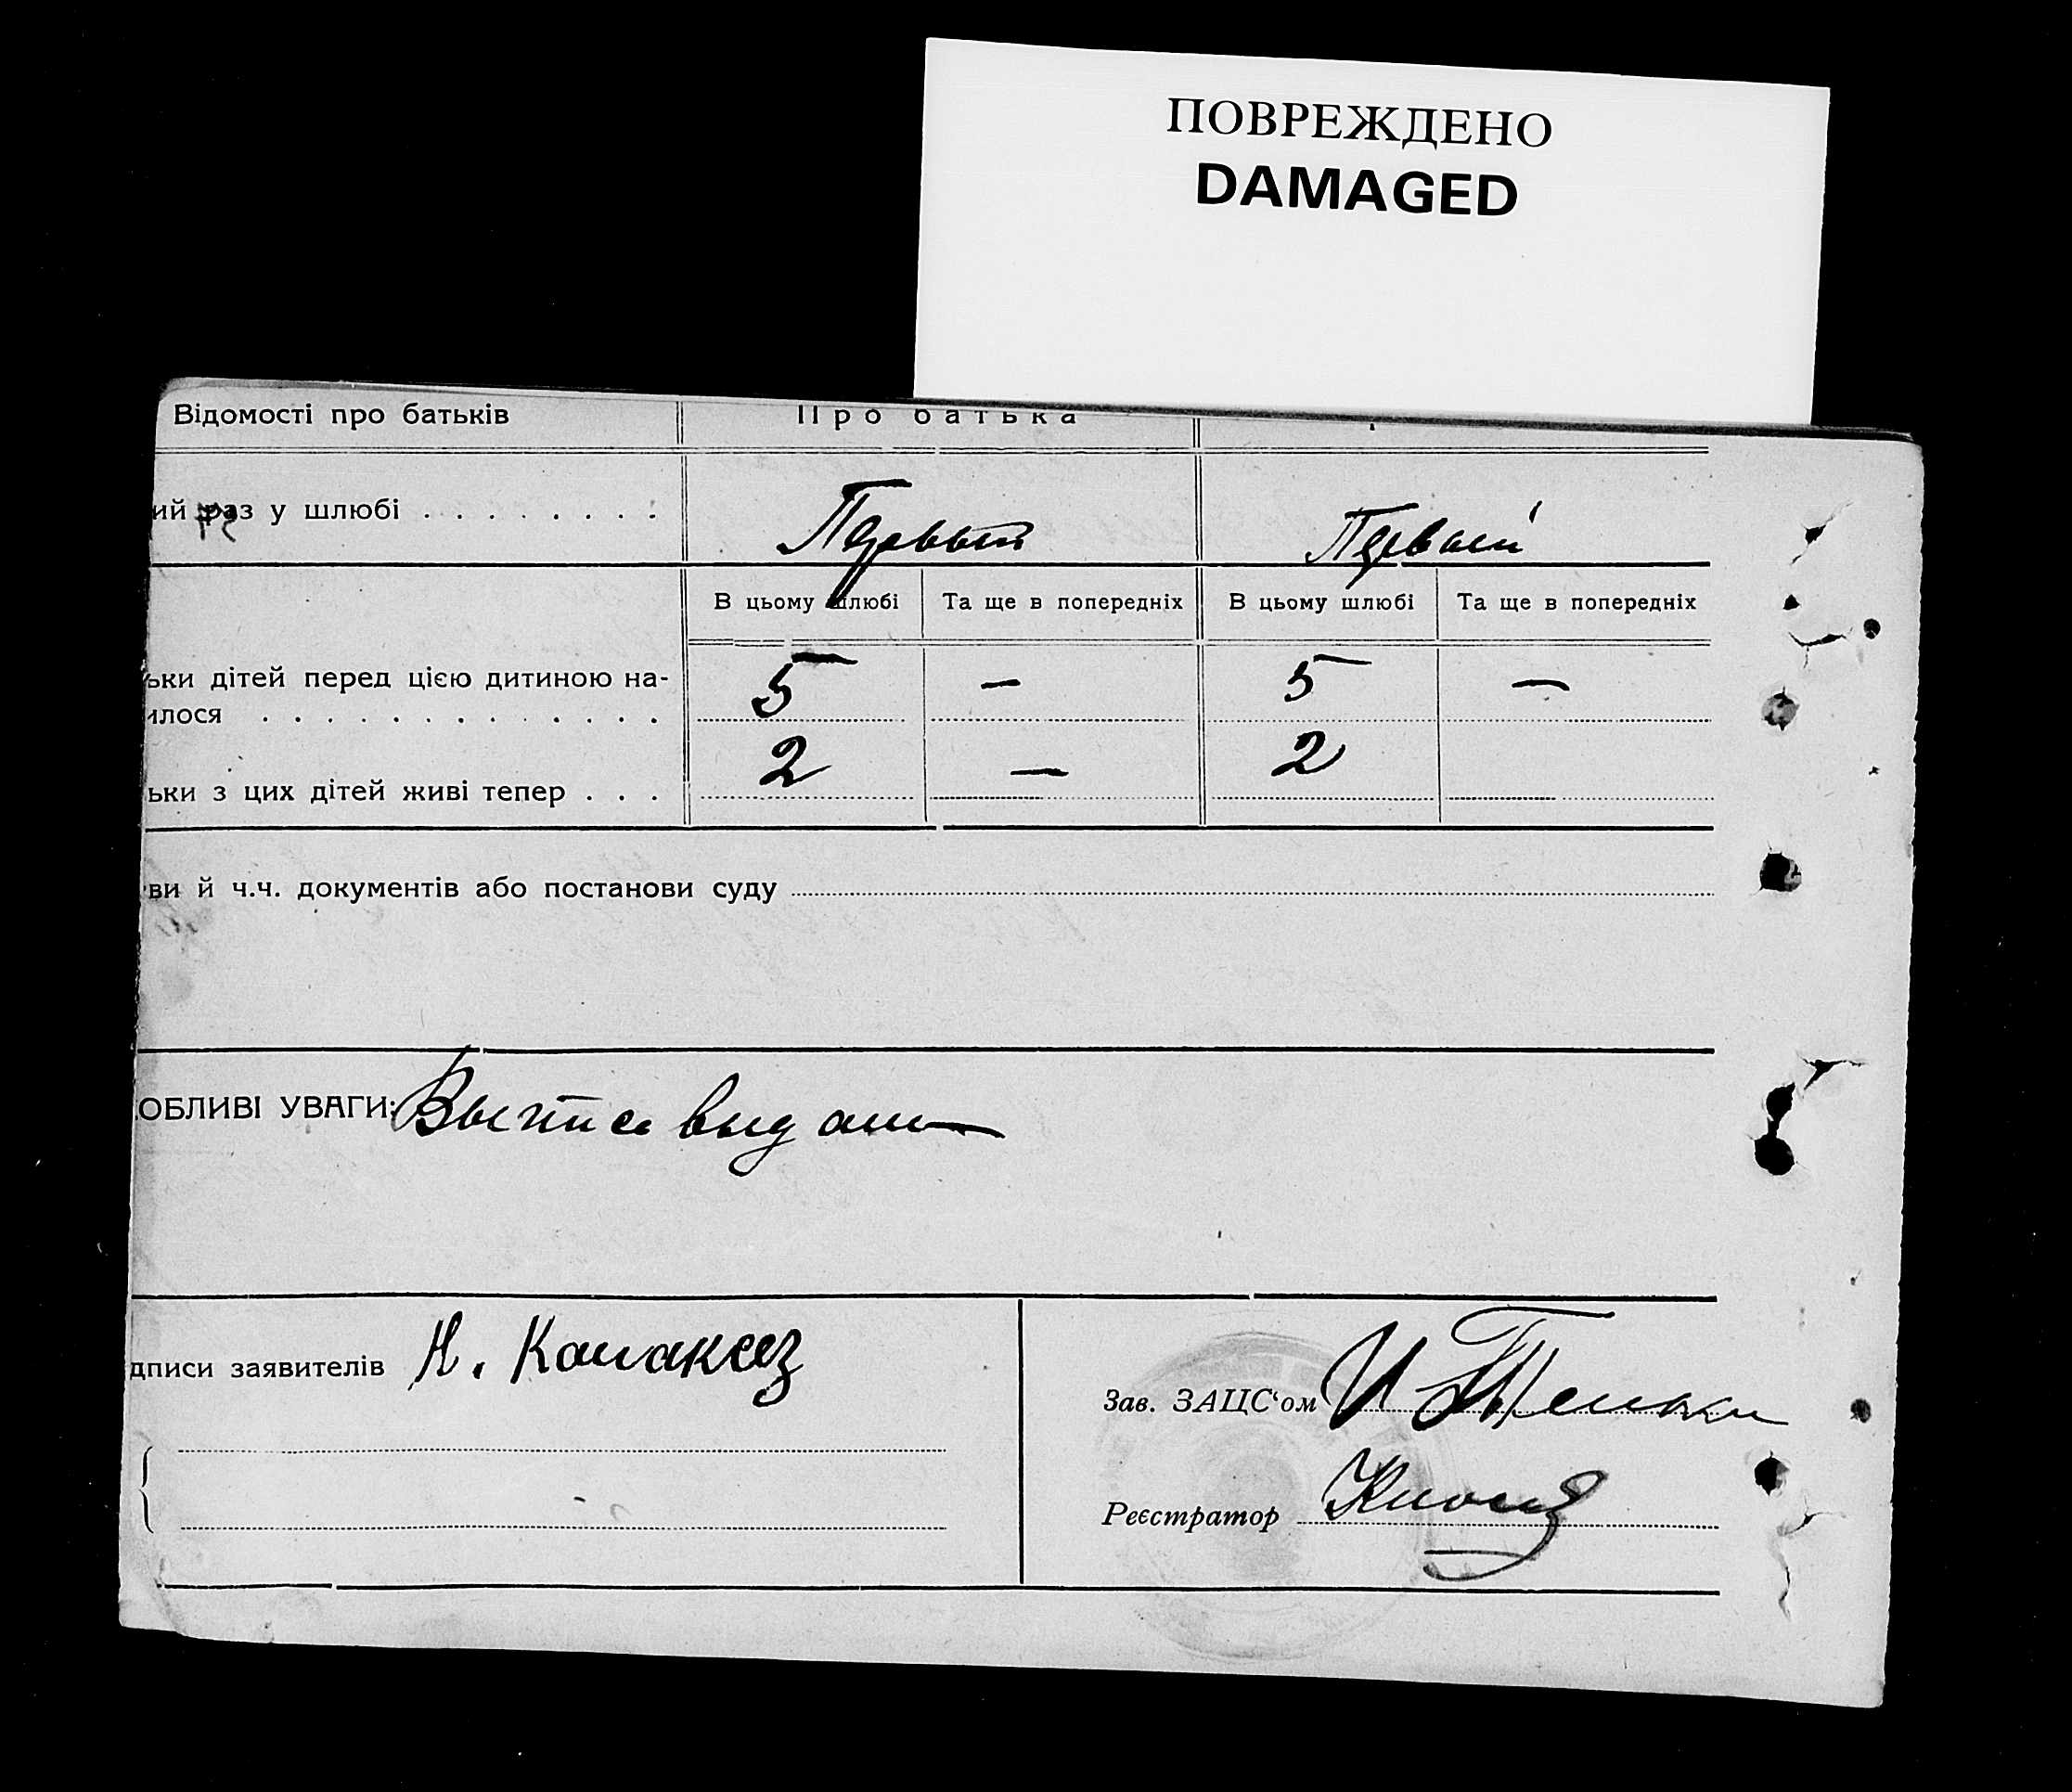 ПОВРЕЖДЕНО
DAMAGED
Відомості про батьків Про батька
ий раз у шлюбі . . . . . . . . Первый Первый
В цьому шлюбі Та ще в попередніх В цьому шлюбі Та ще в попередніх
ьки дітей перед цією дитиною на- 5 — 5 —
илося . . . . . . . . . . . . .
ьки з цих дітей живі тепер . . . 2 — 2
ви й ч.ч. документів або постанови суду
ОБЛИВІ УВАГИ: Выпись выдана
дписи заявителів Н.
Зав. ЗАЦС‘ом И
Реєстратор